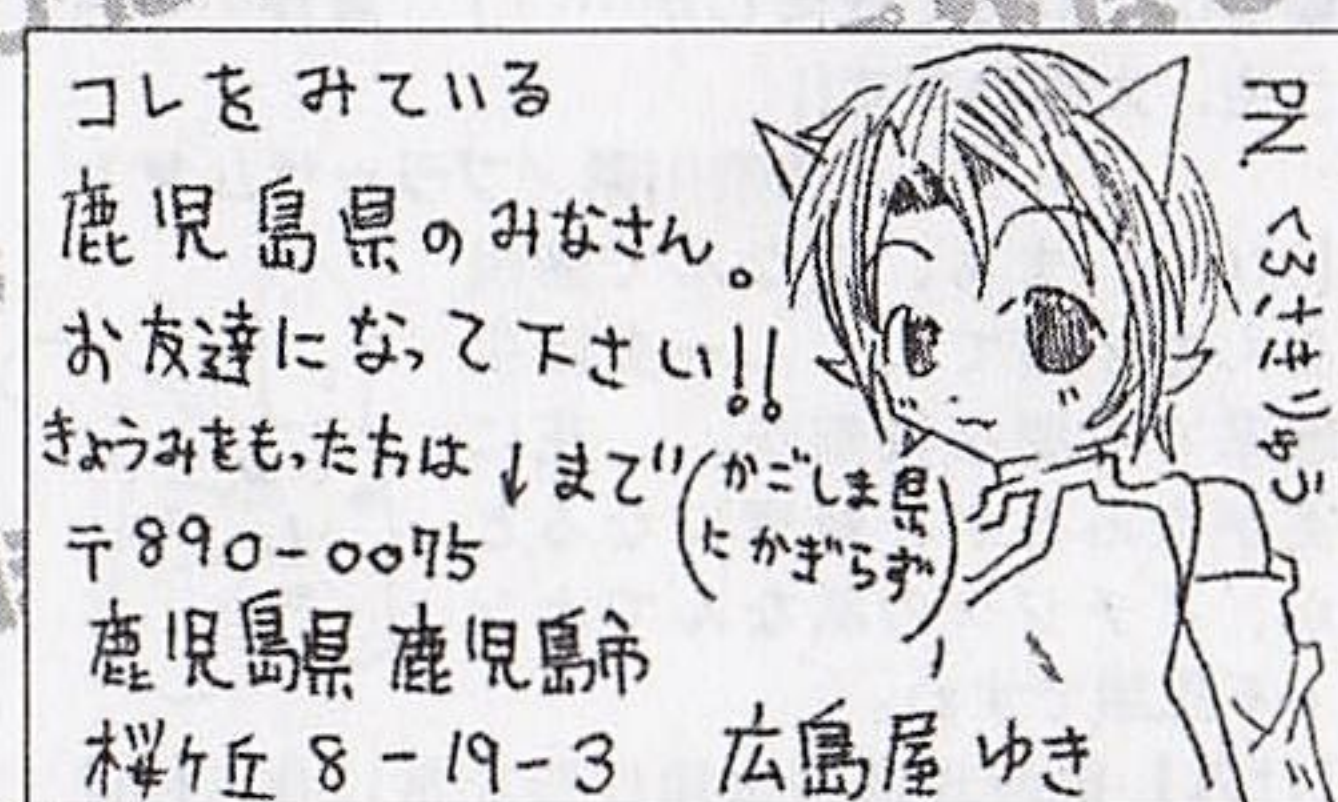 コレを みている
鹿児島県のみなさん。
お友達になって下さい!!
きょうみをもった方は ↓まで
(かごしま県
にかぎらず)
〒890-0075
鹿児島県 鹿児島市
桜ケ丘 8-19-3 広島屋 ゆき
P.N. くろさきりゅう